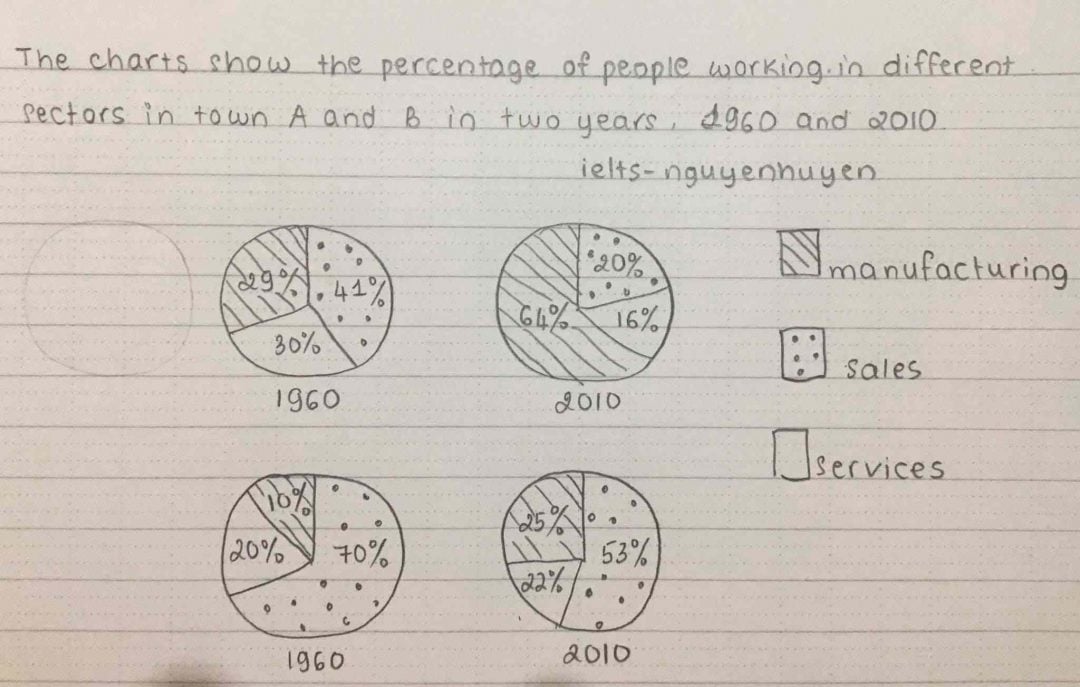 The charts show the percentage of people working in different
sectors in town A and B in two years, 1960 and 2010.
ielts-nguyenhuyen
29%
41%
30%
1960
20%
64%
16%
2010
manufacturing
sales
services
10%
20%
70%
1960
25%
53%
22%
2010